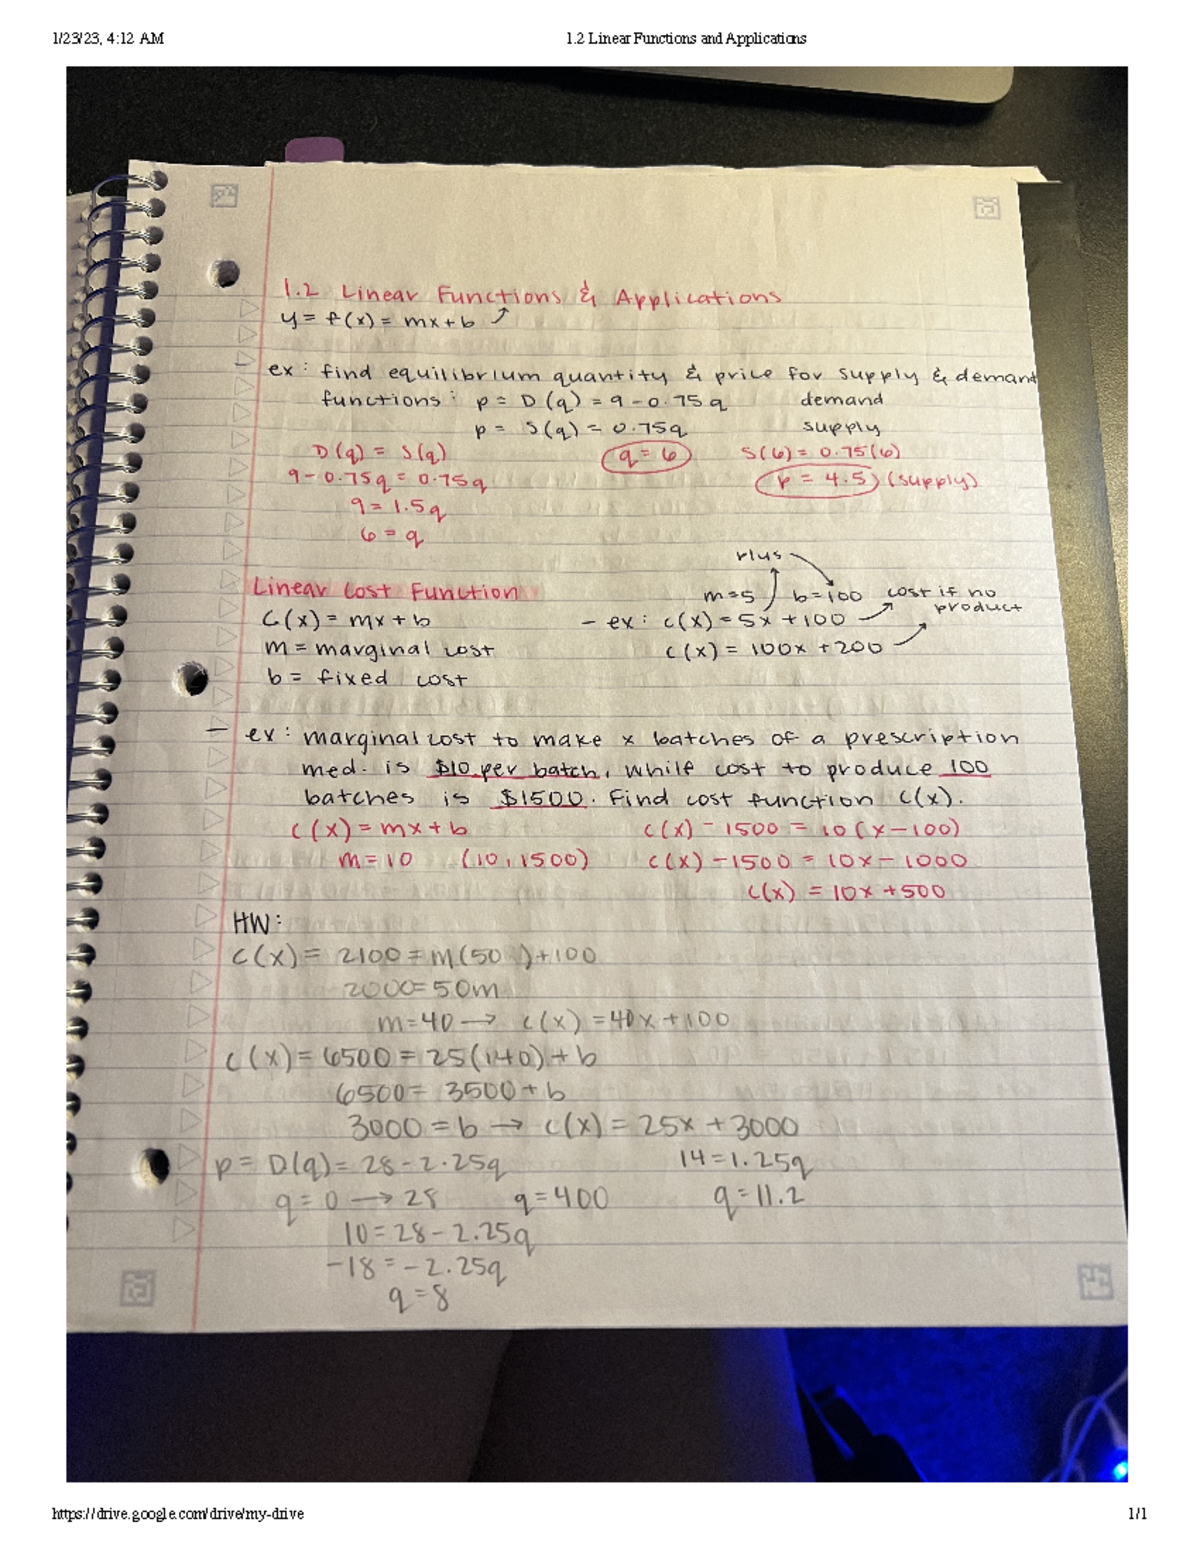 1/23/23, 4:12 AM 1.2 Linear Functions and Applications
1.2 Linear Functions & Applications
y = f(x) = mx + b
- ex: find equilibrium quantity & price for supply & demand
functions: p = D(q) = 9 - 0.75q demand
p = S(q) = 0.75q supply
D(q) = S(q) q = 6 S(6) = 0.75(6)
9 - 0.75q = 0.75q p = 4.5 (supply)
9 = 1.5q
6 = q
Linear Cost Function m=5 b=100 cost if no
product
C(x) = mx + b - ex: c(x) = 5x + 100
m = marginal cost c(x) = 100x + 200
b = fixed cost
- ex: marginal cost to make x batches of a prescription
med. is $10 per batch, while cost to produce 100
batches is $1500. Find cost function C(x).
C(x) = mx + b C(x) - 1500 = 10(x - 100)
m = 10 (10, 1500) C(x) - 1500 = 10x - 1000
C(x) = 10x + 500
HW:
C(x) = 2100 = m(50 ) + 100
2000 = 50m
m = 40 → C(x) = 40x + 100
C(x) = 6500 = 25(140) + b
6500 = 3500 + b
3000 = b → C(x) = 25x + 3000
p = D(q) = 28 - 2.25q 14 = 1.25q
q = 0 → 28 q = 400 q = 11.2
10 = 28 - 2.25q
-18 = -2.25q
q = 8
https://drive.google.com/drive/my-drive 1/1